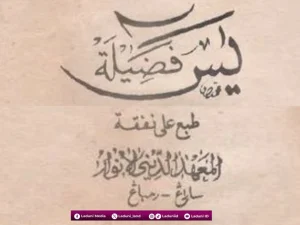 يس فضيلة
طبع على نفقة
المعهد الديني الانوار
سارڠ - رمباڠ
Ladani Media Ladani_land Ladanild Ladani ID